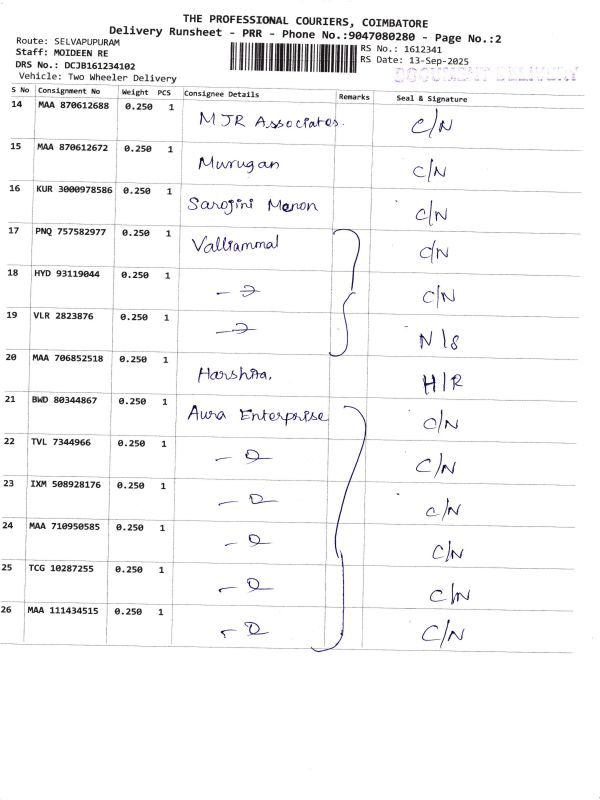 THE PROFESSIONAL COURIERS, COIMBATORE
Delivery Runsheet - PRR - Phone No.:9047080280 - Page No.:2
Route: SELVAPUPURAM
RS No.: 1612341
Staff: MOIDEEN RE
RS Date: 13-Sep-2025
DRS No.: DCJB161234102
DOCUMENT DELIVERY
Vehicle: Two Wheeler Delivery
S No Consignment No Weight PCS Consignee Details Remarks Seal & Signature
14 MAA 870612688 0.250 1 MJR Associates. C/N
15 MAA 870612672 0.250 1 Murugan C/N
16 KUR 3000978586 0.250 1 Sarojini Menon C/N
17 PNQ 757582977 0.250 1 Valliammal C/N
18 HYD 93119044 0.250 1 C/N
19 VLR 2823876 0.250 1 N/S
20 MAA 706852518 0.250 1 Harshita, H/R
21 BWD 80344867 0.250 1 Aura Enterprise C/N
22 TVL 7344966 0.250 1 C/N
23 IXM 508928176 0.250 1 C/N
24 MAA 710950585 0.250 1 C/N
25 TCG 10287255 0.250 1 C/N
26 MAA 111434515 0.250 1 C/N